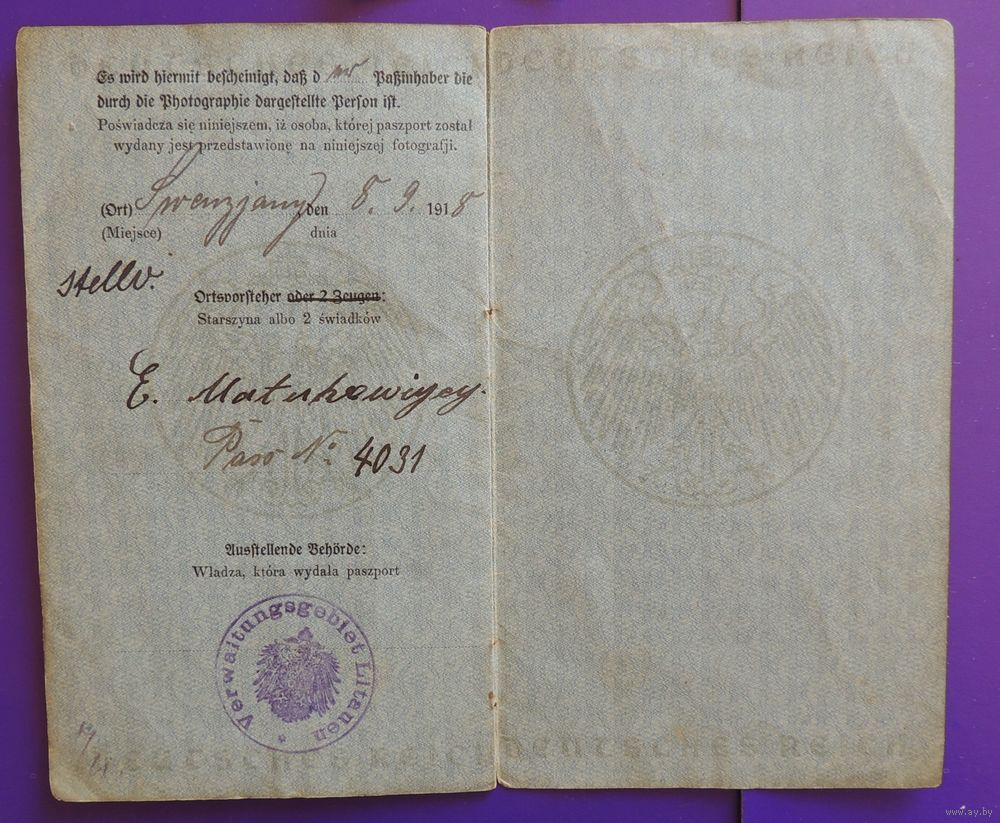 DEUTSCHES REICH
Es wird hiermit bescheinigt, daß d er Paßinhaber die
durch die Photographie dargestellte Person ist.
Poświadcza się niniejszem, iż osoba, której paszport został
wydany jest przedstawionę na niniejszej fotografji.
(Ort) Swenzjany, den 8. 9. 1918
(Miejsce) dnia
stellv.
Ortsvorsteher oder 2 Zeugen:
Starszyna albo 2 świadków
E. Matukewizcy.
Pass No: 4031
Ausstellende Behörde:
Władza, która wydała paszport
Verwaltungsgebiet Litauen
DEUTSCHES REICH DEUTSCHES REICH
www.ay.by